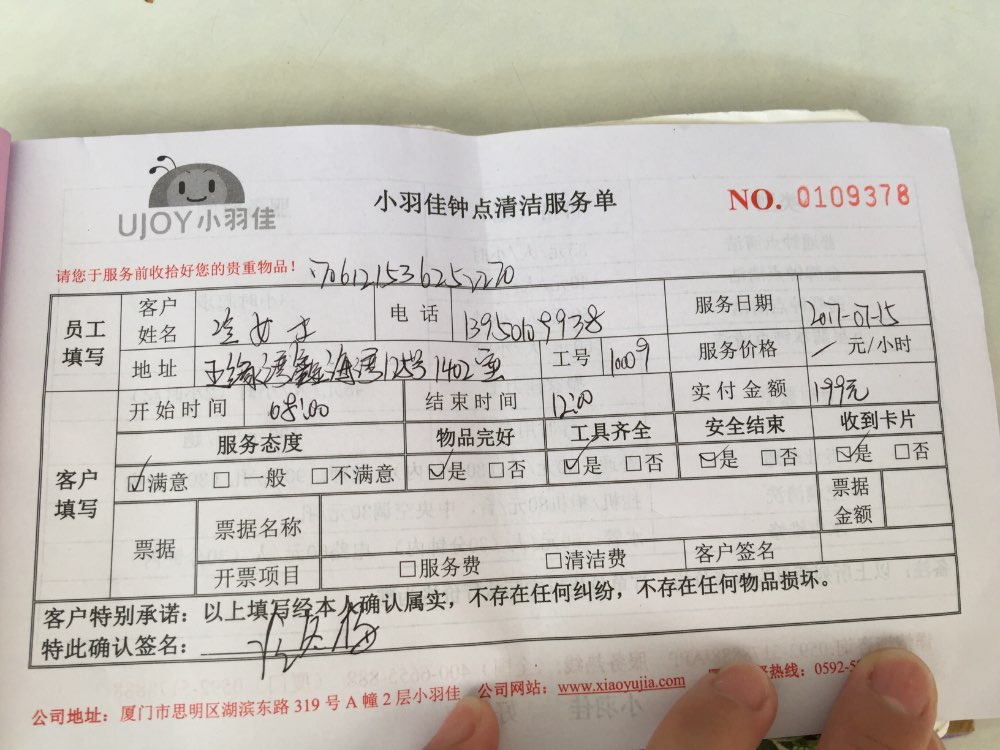 UJOY小羽佳
小羽佳钟点清洁服务单
NO. 0109378
请您于服务前收拾好您的贵重物品！
员工填写 客户姓名 女士 电话 13950109938 服务日期 2017-07-15
地址 五缘湾 海湾125号1402室 工号 10009 服务价格 / 元/小时
客户填写 开始时间 08:00 结束时间 12:00 实付金额 199元
服务态度 物品完好 工具齐全 安全结束 收到卡片
☑满意 □ 一般 □不满意 ☑是 □否 ☑是 □否 ☑是 □否 ☑是 □否
票据 票据名称 票据金额
开票项目 □服务费 □清洁费 客户签名
客户特别承诺：以上填写经本人确认属实，不存在任何纠纷，不存在任何物品损坏。
特此确认签名：
公司地址：厦门市思明区湖滨东路 319 号 A 幢 2 层小羽佳 公司网站：www.xiaoyujia.com 热线：0592-5